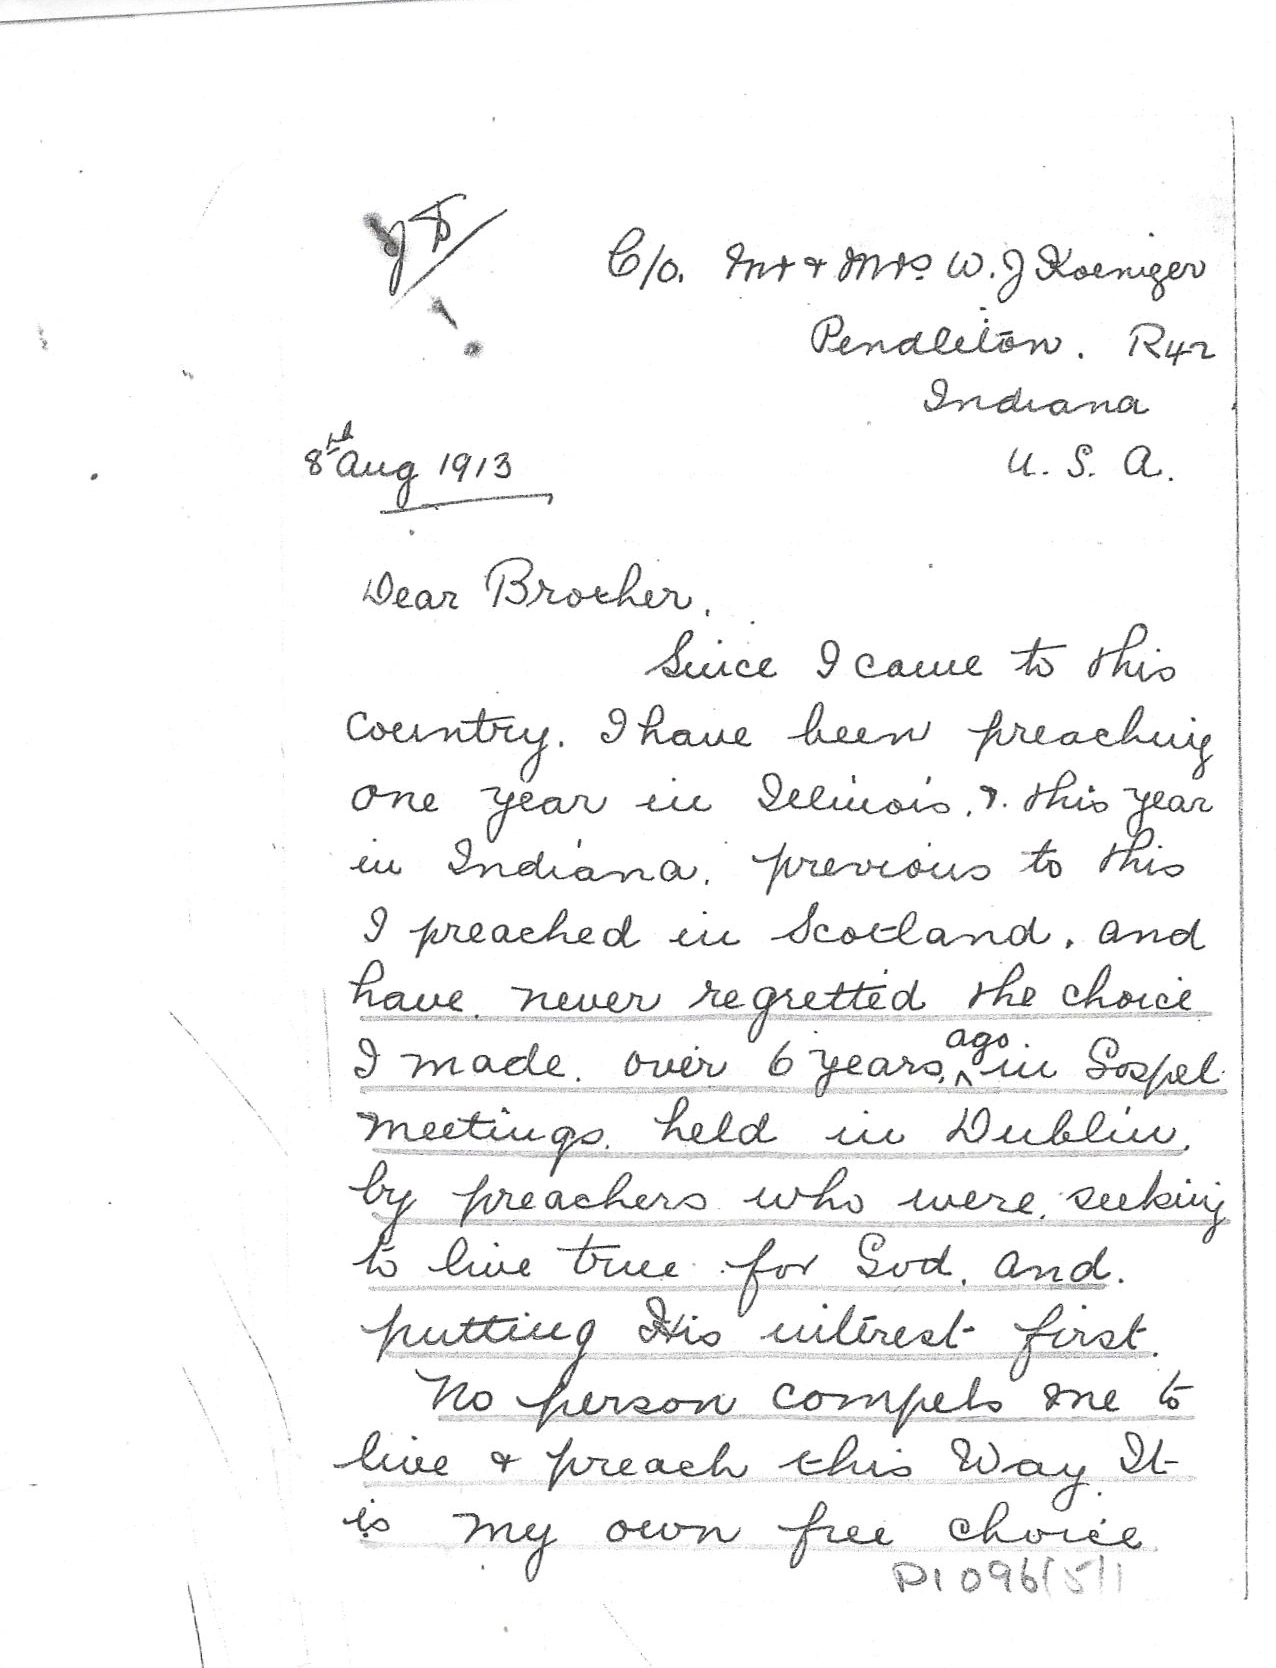 C/o. Mr & Mrs. W. J Koeniger
Pendleton. R42
Indiana
U. S. A.
8th Aug 1913
Dear Brother,
Since I came to this
Country. I have been preaching
one year in Illinois, & this year
in Indiana. previous to this
I preached in Scotland, and
have never regretted the choice
I made. over 6 years, ago in Gospel
Meetings. held in Dublin,
by preachers who were, seeking
to live true for God, and.
putting His interest first.
No person compels me to
live & preach this Way. It
is my own free choice
D1096/5/1